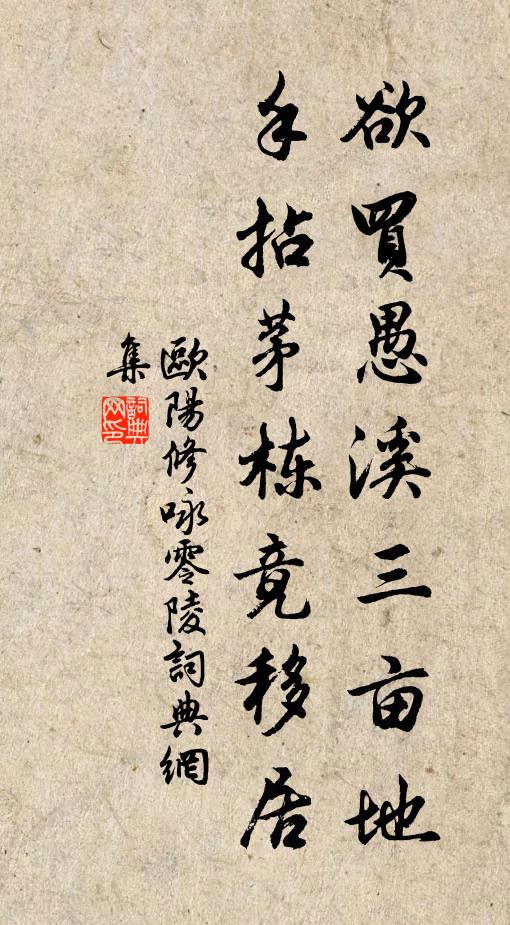 欲買愚溪三亩地
手拈茅栋竟移居
歐陽修咏零陵詞典網
集
詞典网印